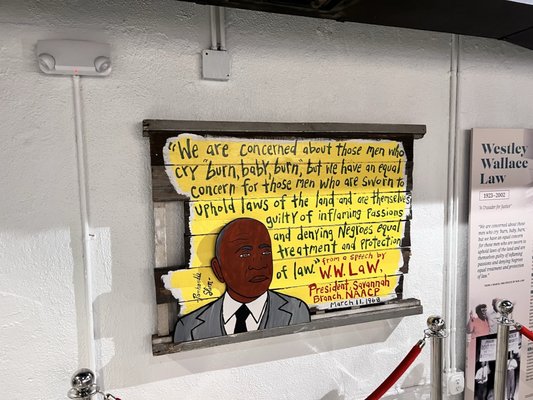 "We are concerned about those men who
cry "burn, baby, burn," but we have an equal
concern for those men who are sworn to
uphold laws of the land and are themselves
guilty of inflaming passions
and denying Negroes equal
treatment and protection
of law." from a speech by
W.W. LAW,
President, Savannah
Branch, NAACP
March 11, 1968
Panhandle
Slim
Westley
Wallace
Law
1923-2002
"A Crusader for Justice"
"We are concerned about those men
who cry 'burn, baby, burn,'
but we have an equal concern for
those men who are sworn to
uphold laws of the land and are
themselves guilty of inflaming
passions and denying Negroes
equal treatment and protection
of law."